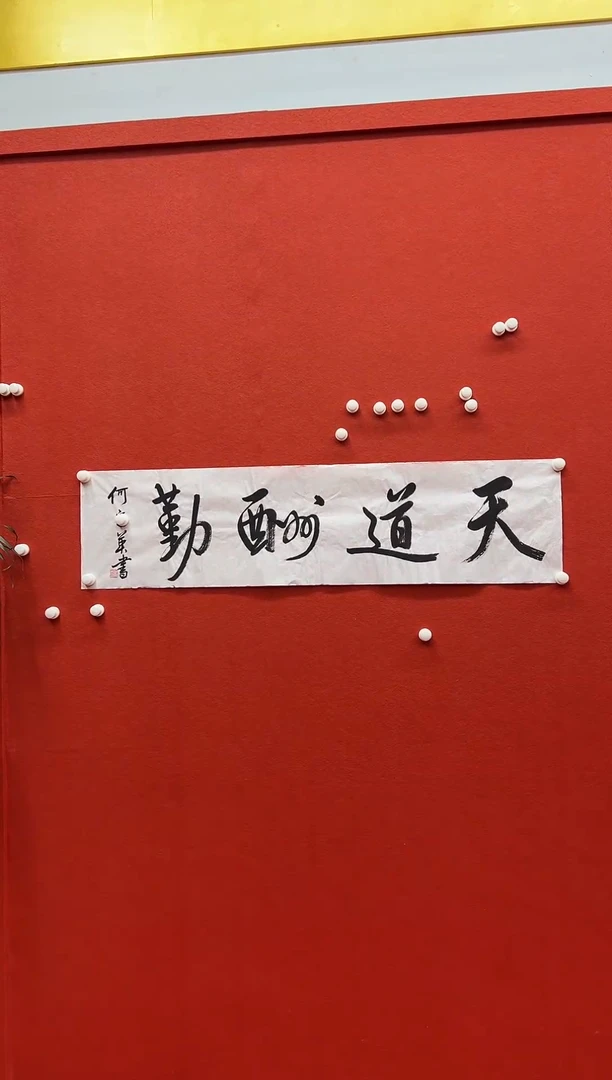 天道酬勤
何 英書